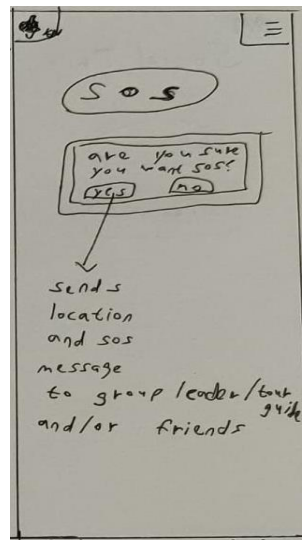 SOS
are you sure
you want sos?
yes no
sends
location
and sos
message
to group leader/tour
guide
and/or friends